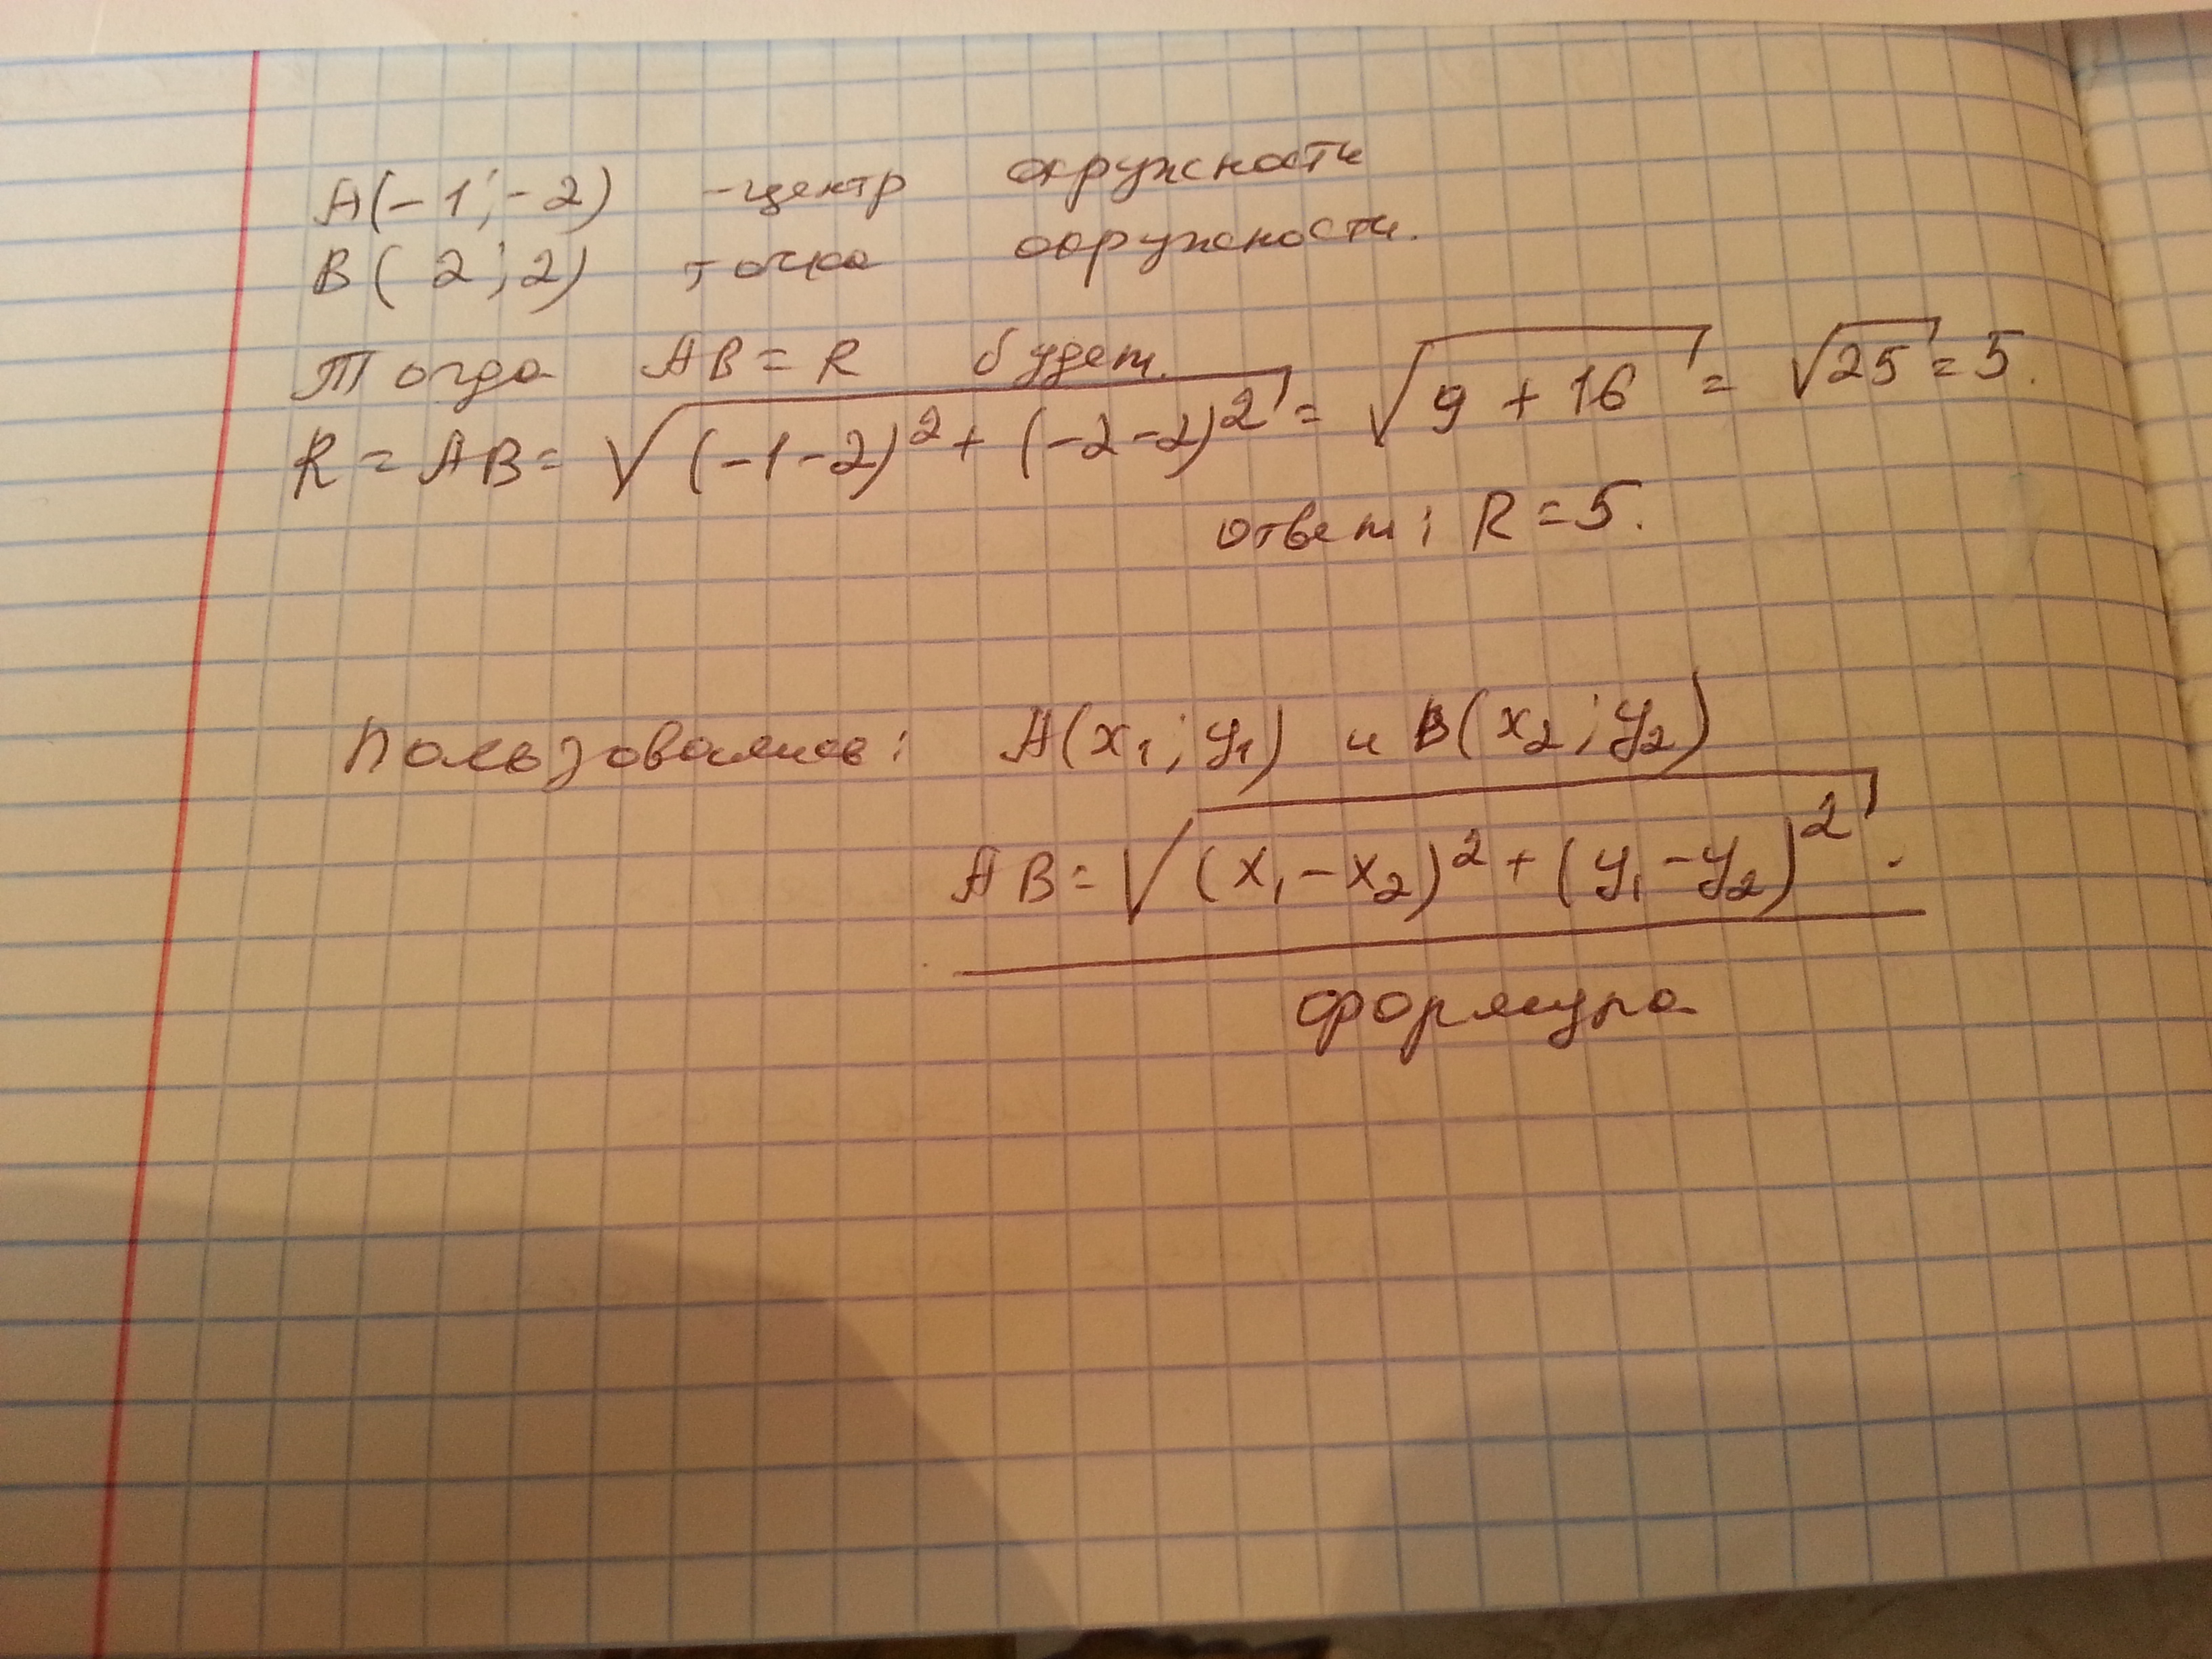 A(-1; -2) - центр окружности
B( 2; 2) точка окружности.
Тогда AB = R будет.
R = AB = √((-1-2)² + (-2-2)²) = √(9 + 16) = √25 = 5.
Ответ: R = 5.
Пользовались: A(x₁; y₁) и B(x₂; y₂)
AB = √((x₁-x₂)² + (y₁-y₂)²).
формула